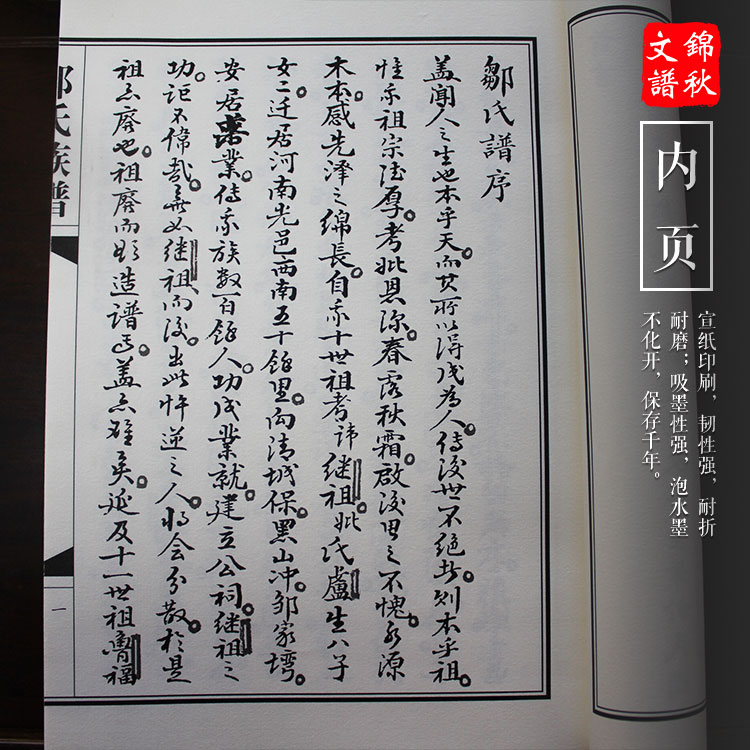 錦秋
文譜
内页
宣纸印刷，韧性强，耐折
耐磨；吸墨性强，泡水墨
不化开，保存千年。
鄒氏譜序
盖闻人之生也本乎天。而其所以得成為人。传後世不绝者。则本乎祖。
惟祖宗德厚。考妣恩深。春露秋霜。啟後思之不愧。水源
木本。感先泽之绵長。自我十世祖考讳继祖。妣氏盧生八子
女二迁居河南光邑西南五十餘里向清城保。黑山冲。邹家塆。
安居業。传我族数百餘人。功成業就。建立公祠。继祖之
功。讵不偉哉。無如继祖而後。出此忤逆之人。將会分散。於是
祖亦廢也。祖廢而造譜。盖亦难矣。延及十一世祖魯福
氏族譜
一